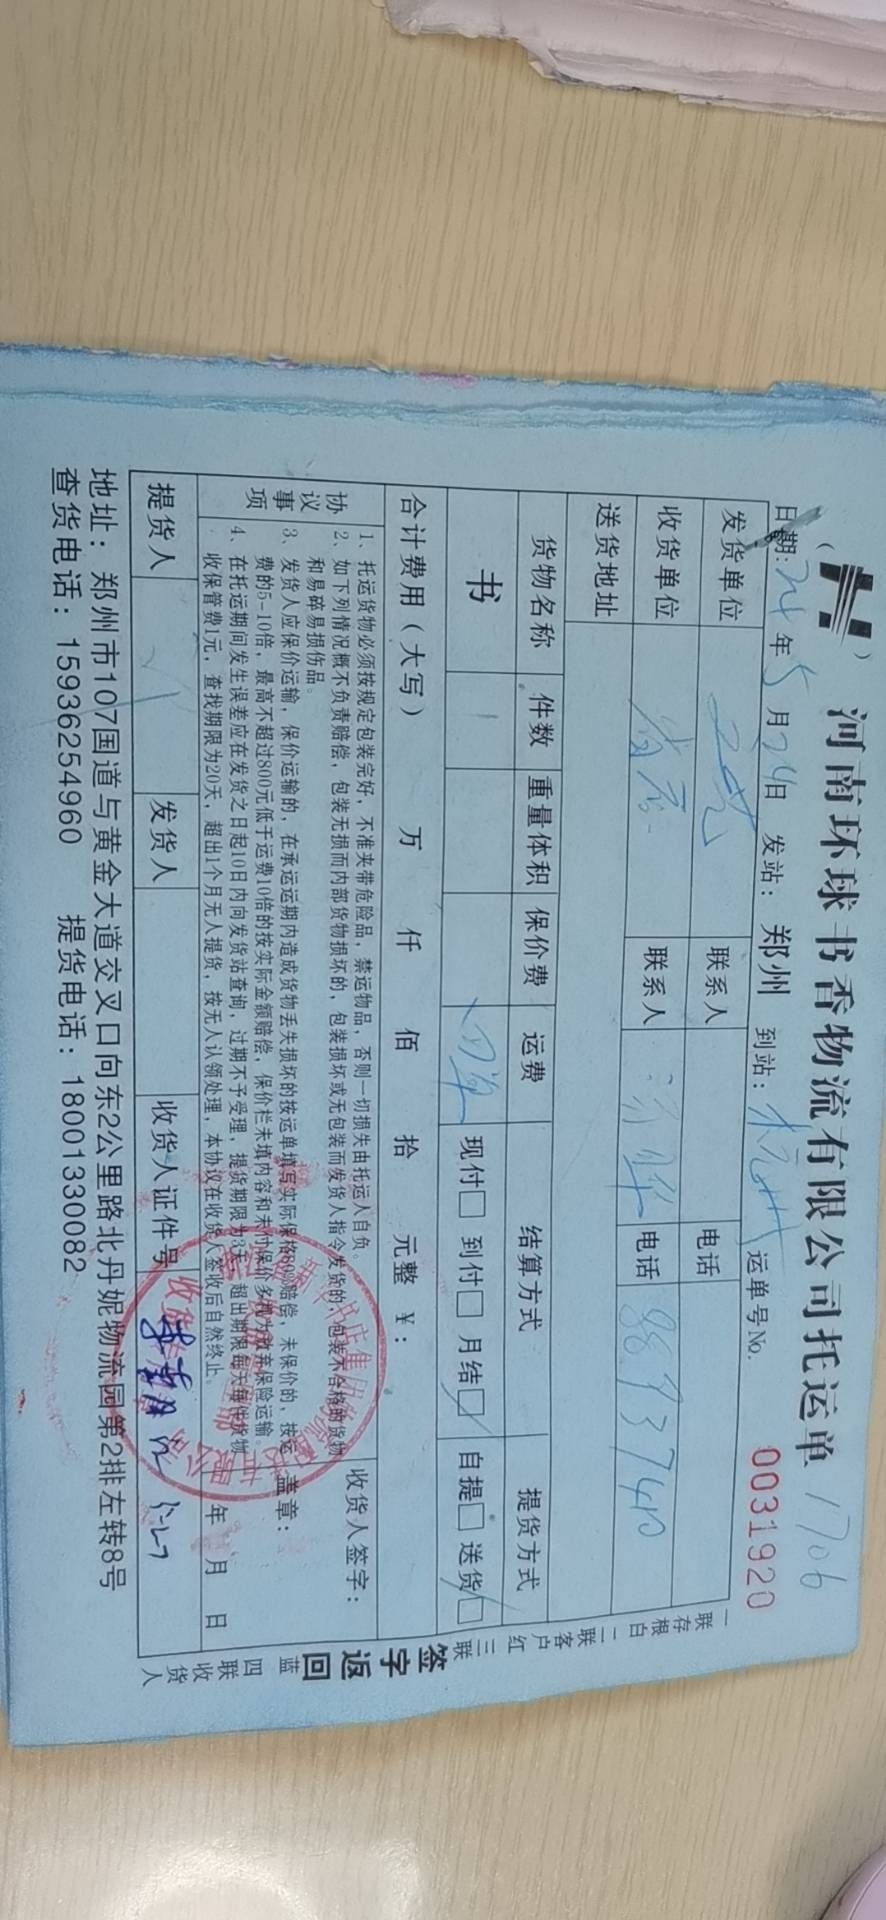 河南环球书香物流有限公司托运单 1706
日期: 24 年 5 月 24 日 发站: 郑州 到站: 运单号No. 0031920
发货单位 联系人 电话
收货单位 联系人 电话 8693740
送货地址
货物名称 件数 重量体积 保价费 运费 结算方式 提货方式
书 1 回单 现付□ 到付□ 月结□ 自提□ 送货□
合计费用(大写) 万 仟 佰 拾 元整 ¥:
协议事项
1、托运货物必须按规定包装完好,不准夹带危险品,禁运物品,否则一切损失由托运人自负。
2、如下列情况概不负责赔偿,包装无损而内部货物损坏的,包装损坏或无包装而发货人指令发货的,包装不合格的货物
和易碎易损伤品。
3、发货人应保价运输,保价运输的,在承运期内造成货物丢失损坏的按运单填写实际保格80%赔偿,未保价的,按运
费的5-10倍,最高不超过800元低于运费10倍的按实际金额赔偿,保价栏未填内容和未付保价多视为放弃保险运输。
4、在托运期间发生误差应在发货之日起10日内向发货站查询,过期不予受理,提货期限为3天,超出期限每天每件货物
收保管费1元,查找期限为20天,超出1个月无人提货,按无人认领处理,本协议在收货人签收后自然终止。
收货人签字:
盖章:
年 月 日
提货人 发货人 收货人证件号
地址:郑州市107国道与黄金大道交叉口向东2公里路北丹妮物流园第2排左转8号
查货电话:15936254960 提货电话:18001330082
一联存根白 二联客户红 三联签字返回蓝 四联收货人